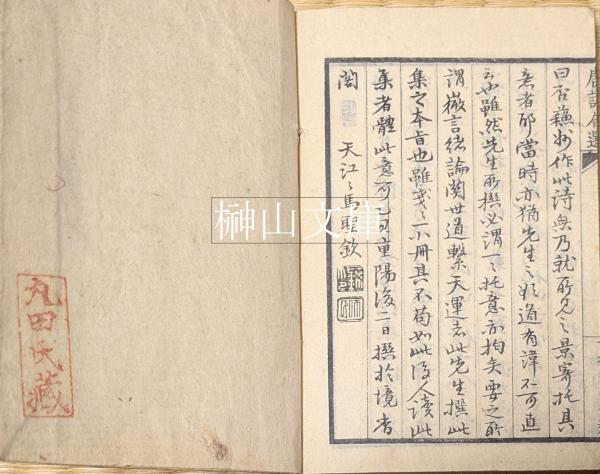 唐詩合選
曰否蘇州作此詩無乃就所見之景寄托其
意者耶當時亦猶先生之於道有諱不可直
云也雖然先生所撰必謂一一托意亦拘矣要之所
謂微言緒論関世道繫天運者此先生撰此
集之本旨也雖戔々一小冊其不苟如此後人讀此
集者體此意可也旹重陽後二日撰於境杳
閣
天江々馬聖欽
丸田氏藏
榊山文庫